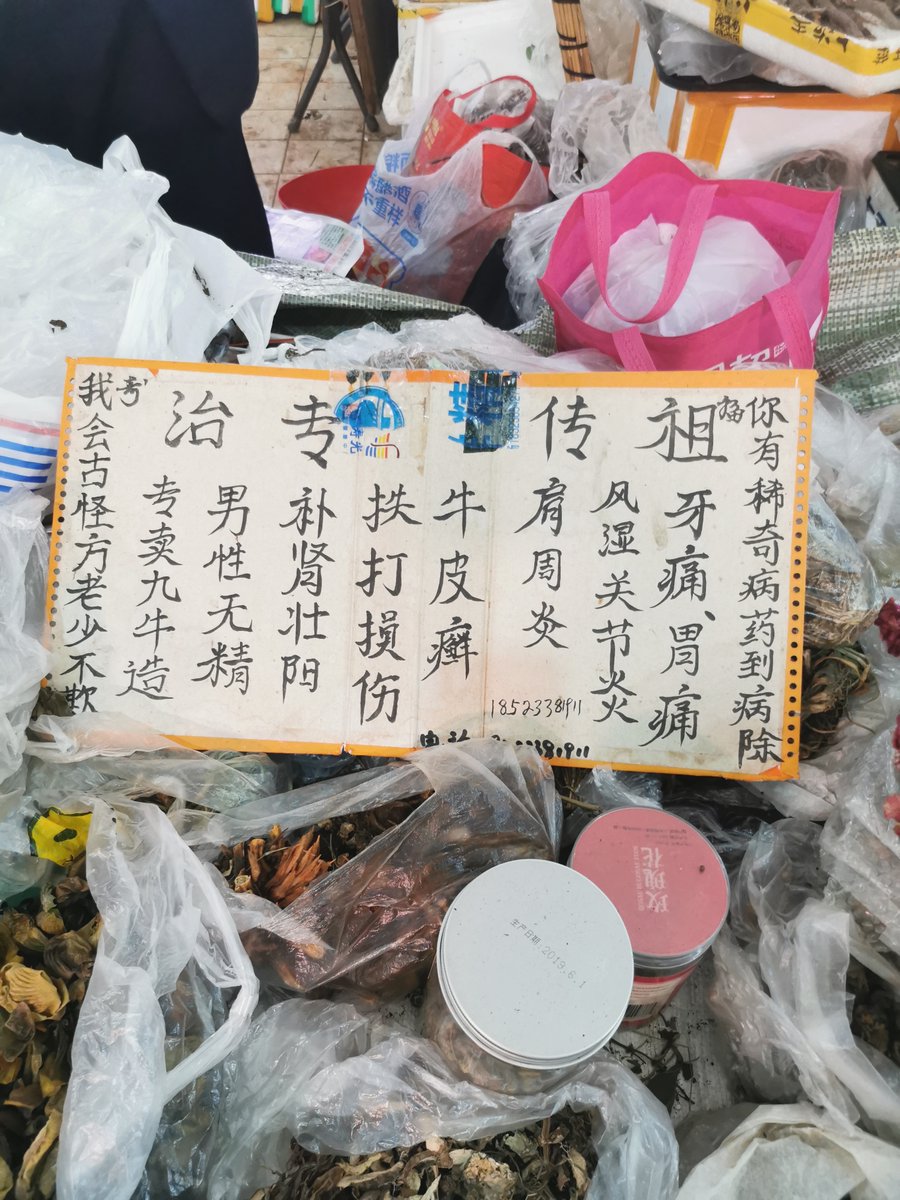 你有稀奇病药到病除
祖传
专治
牙痛、胃痛
风湿关节炎
肩周炎
18523381911
牛皮癣
跌打损伤
补肾壮阳
男性无精
专卖九牛造
我会古怪方老少不欺
玫瑰花
生产日期:2019.6.1
不重样